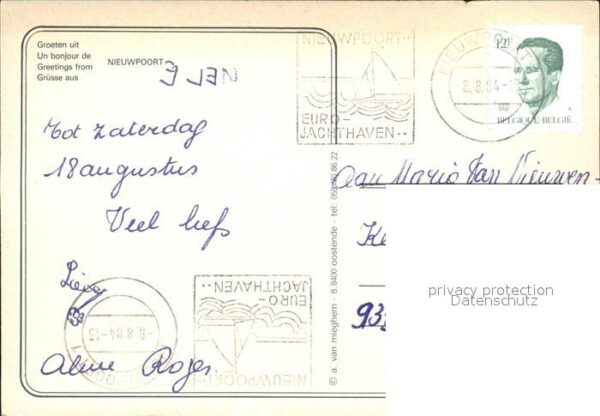 Groeten uit
Un bonjour de
Greetings from
Grüsse aus
NIEUWPOORT
Tot zaterdag
18 augustus
Veel liefs
Aline Roger
NIEUWPOORT
EURO-
JACHTHAVEN..
NIEUWPOORT
8.8.84-1
12F
BELGIQUE-BELGIË
Aan Maria Van Nieuwen-
Ke
93
privacy protection
Datenschutz
© a. van mieghem - B 8400 oostende - tel.
EURO-
JACHTHAVEN..
NIEUWPOORT
-8.8.84-13